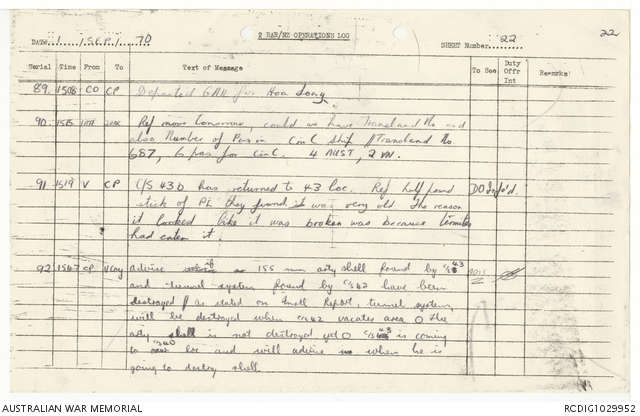 DATE 1 / SEP / 70
2 RAR/NZ OPERATIONS LOG
SHEET Number 22
22
Serial Time From To Text of Message To See Duty Offr Int Remarks
89. 1508 CO CP Departed GAN for Hoa Long
90. 1515 Ref move tomorrow, could we have Transland No and
also Number of Pax on Con C Ship // Transland No
687, 6 pax for Con C. 4 AUST, 2 VN.
91 1519 V CP C/S 43b has returned to 43 loc. Ref half pound DO Info'd.
stick of PE they found it was very old the reason
it looked like it was broken was because termites
had eaten it.
92 1547 CP V Coy advise if 155 mm arty shell found by C/S 43
and tunnel system found by C/S 42 have been
destroyed // as stated on Intell Report, tunnel system
will be destroyed when C/S 42 vacates area O the
arty shell is not destroyed yet O C/S 43 is coming
to loc and will advise us when he is
going to destroy shell.
AUSTRALIAN WAR MEMORIAL
RCDIG1029952